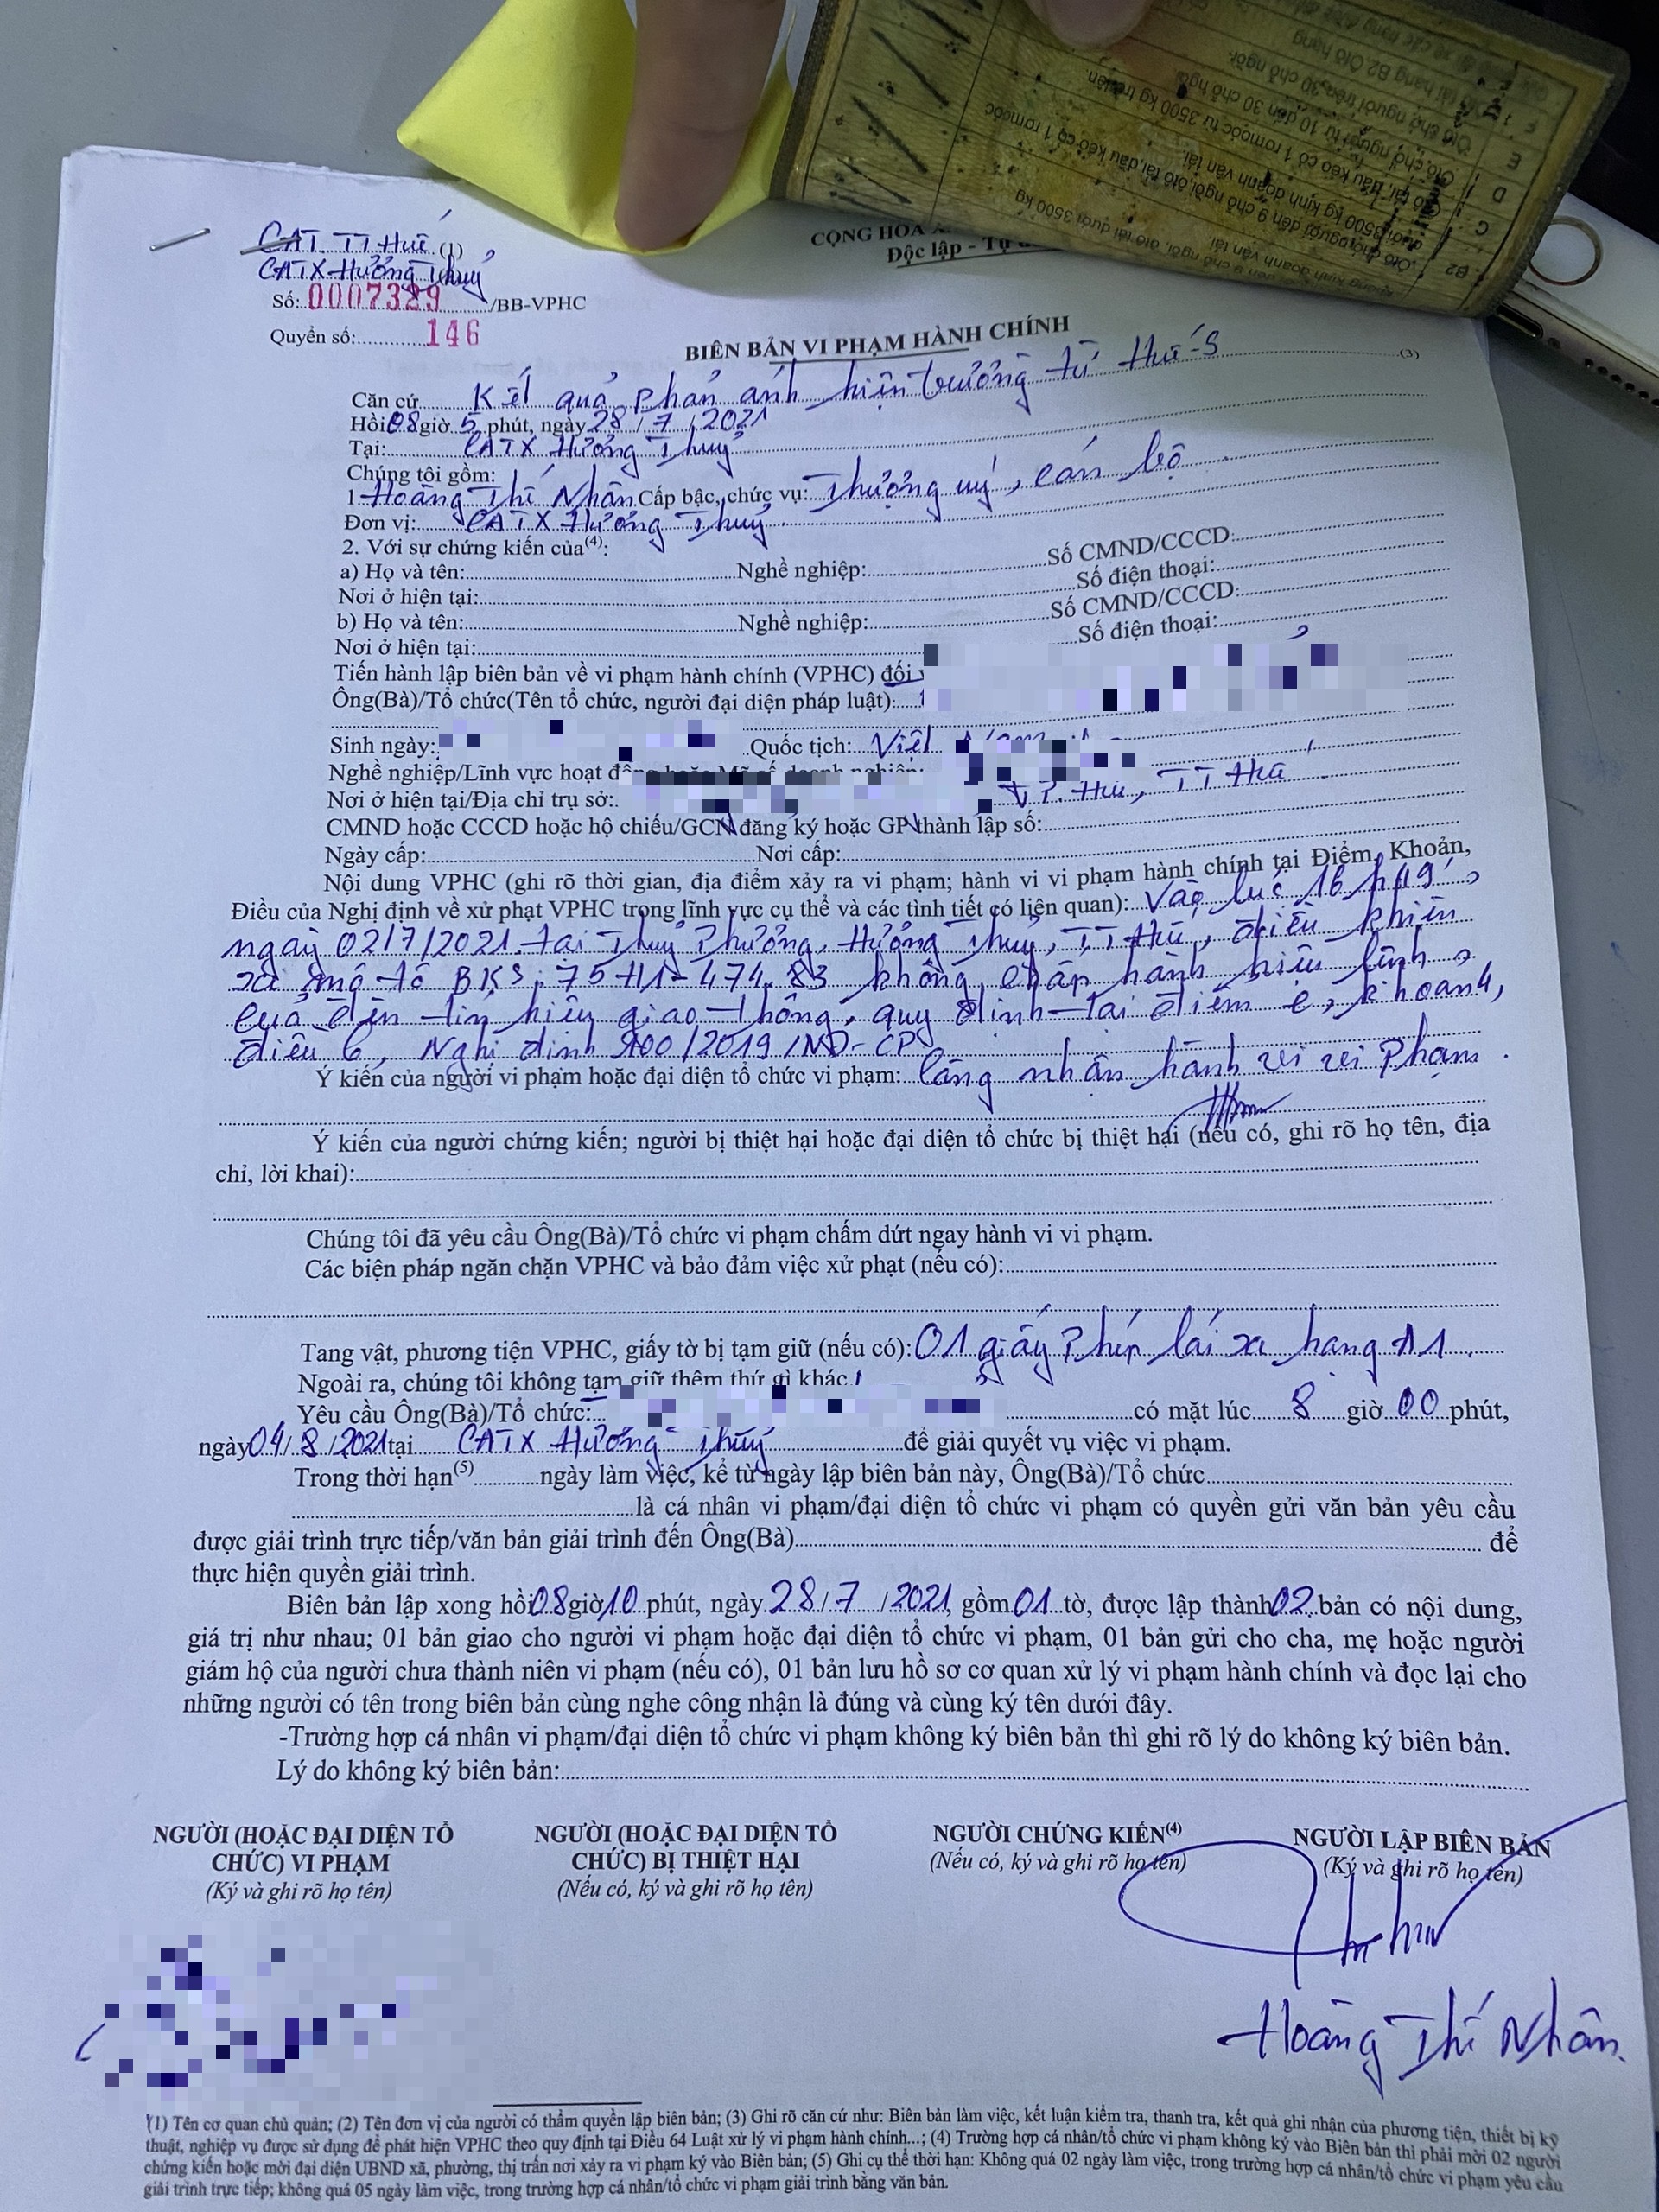 CAT TT Huế (1)
CATX Hương Thuỷ
Số: 0007329 /BB-VPHC
Quyển số: 146
CỘNG HOÀ
Độc lập - Tự
BIÊN BẢN VI PHẠM HÀNH CHÍNH
Căn cứ Kết quả phản ánh hiện trường từ Huế-S (3)
Hồi 08 giờ 5 phút, ngày 28/7/2021
Tại: CATX Hương Thuỷ
Chúng tôi gồm:
1. Hoàng Thí Nhân Cấp bậc, chức vụ: Thượng uý, cán bộ
Đơn vị: CATX Hương Thuỷ
2. Với sự chứng kiến của(4):
a) Họ và tên: Nghề nghiệp: Số CMND/CCCD:
Nơi ở hiện tại: Số điện thoại:
b) Họ và tên: Nghề nghiệp: Số CMND/CCCD:
Nơi ở hiện tại: Số điện thoại:
Tiến hành lập biên bản về vi phạm hành chính (VPHC) đối
Ông(Bà)/Tổ chức(Tên tổ chức, người đại diện pháp luật):
Sinh ngày: Quốc tịch: Việt Nam
Nghề nghiệp/Lĩnh vực hoạt
Nơi ở hiện tại/Địa chỉ trụ sở: TP. Huế, TT Huế
CMND hoặc CCCD hoặc hộ chiếu/GCN đăng ký hoặc GP thành lập số:
Ngày cấp: Nơi cấp:
Nội dung VPHC (ghi rõ thời gian, địa điểm xảy ra vi phạm; hành vi vi phạm hành chính tại Điểm, Khoản,
Điều của Nghị định về xử phạt VPHC trong lĩnh vực cụ thể và các tình tiết có liên quan): Vào lúc 16h49',
ngày 02/7/2021 tại Thuỷ Phương, Hương Thuỷ, TT Huế, điều khiển
xe mô tô BKS: 75H1-474.83 không chấp hành hiệu lệnh
của đèn tín hiệu giao thông, quy định tại điểm e, khoản 4,
điều 6, Nghị định 100/2019/NĐ-CP
Ý kiến của người vi phạm hoặc đại diện tổ chức vi phạm: Công nhận hành vi vi phạm.
Ý kiến của người chứng kiến; người bị thiệt hại hoặc đại diện tổ chức bị thiệt hại (nếu có, ghi rõ họ tên, địa
chỉ, lời khai):
Chúng tôi đã yêu cầu Ông(Bà)/Tổ chức vi phạm chấm dứt ngay hành vi vi phạm.
Các biện pháp ngăn chặn VPHC và bảo đảm việc xử phạt (nếu có):
Tang vật, phương tiện VPHC, giấy tờ bị tạm giữ (nếu có): 01 giấy phép lái xe hạng A1
Ngoài ra, chúng tôi không tạm giữ thêm thứ gì khác.
Yêu cầu Ông(Bà)/Tổ chức: có mặt lúc 8 giờ 00 phút,
ngày 04/8/2021 tại CATX Hương Thuỷ để giải quyết vụ việc vi phạm.
Trong thời hạn(5) ngày làm việc, kể từ ngày lập biên bản này, Ông(Bà)/Tổ chức
là cá nhân vi phạm/đại diện tổ chức vi phạm có quyền gửi văn bản yêu cầu
được giải trình trực tiếp/văn bản giải trình đến Ông(Bà) để
thực hiện quyền giải trình.
Biên bản lập xong hồi 08 giờ 10 phút, ngày 28/7/2021, gồm 01 tờ, được lập thành 02 bản có nội dung,
giá trị như nhau; 01 bản giao cho người vi phạm hoặc đại diện tổ chức vi phạm, 01 bản gửi cho cha, mẹ hoặc người
giám hộ của người chưa thành niên vi phạm (nếu có), 01 bản lưu hồ sơ cơ quan xử lý vi phạm hành chính và đọc lại cho
những người có tên trong biên bản cùng nghe công nhận là đúng và cùng ký tên dưới đây.
-Trường hợp cá nhân vi phạm/đại diện tổ chức vi phạm không ký biên bản thì ghi rõ lý do không ký biên bản.
Lý do không ký biên bản:
NGƯỜI (HOẶC ĐẠI DIỆN TỔ CHỨC) VI PHẠM
(Ký và ghi rõ họ tên)
NGƯỜI (HOẶC ĐẠI DIỆN TỔ CHỨC) BỊ THIỆT HẠI
(Nếu có, ký và ghi rõ họ tên)
NGƯỜI CHỨNG KIẾN(4)
(Nếu có, ký và ghi rõ họ tên)
NGƯỜI LẬP BIÊN BẢN
(Ký và ghi rõ họ tên)
Hoàng Thí Nhân
(1) Tên cơ quan chủ quản; (2) Tên đơn vị của người có thẩm quyền lập biên bản; (3) Ghi rõ căn cứ như: Biên bản làm việc, kết luận kiểm tra, thanh tra, kết quả ghi nhận của phương tiện, thiết bị kỹ
thuật, nghiệp vụ được sử dụng để phát hiện VPHC theo quy định tại Điều 64 Luật xử lý vi phạm hành chính...; (4) Trường hợp cá nhân/tổ chức vi phạm không ký vào Biên bản thì phải mời 02 người
chứng kiến hoặc mời đại diện UBND xã, phường, thị trấn nơi xảy ra vi phạm ký vào Biên bản; (5) Ghi cụ thể thời hạn: Không quá 02 ngày làm việc, trong trường hợp cá nhân/tổ chức vi phạm yêu cầu
giải trình trực tiếp; không quá 05 ngày làm việc, trong trường hợp cá nhân/tổ chức vi phạm giải trình bằng văn bản.